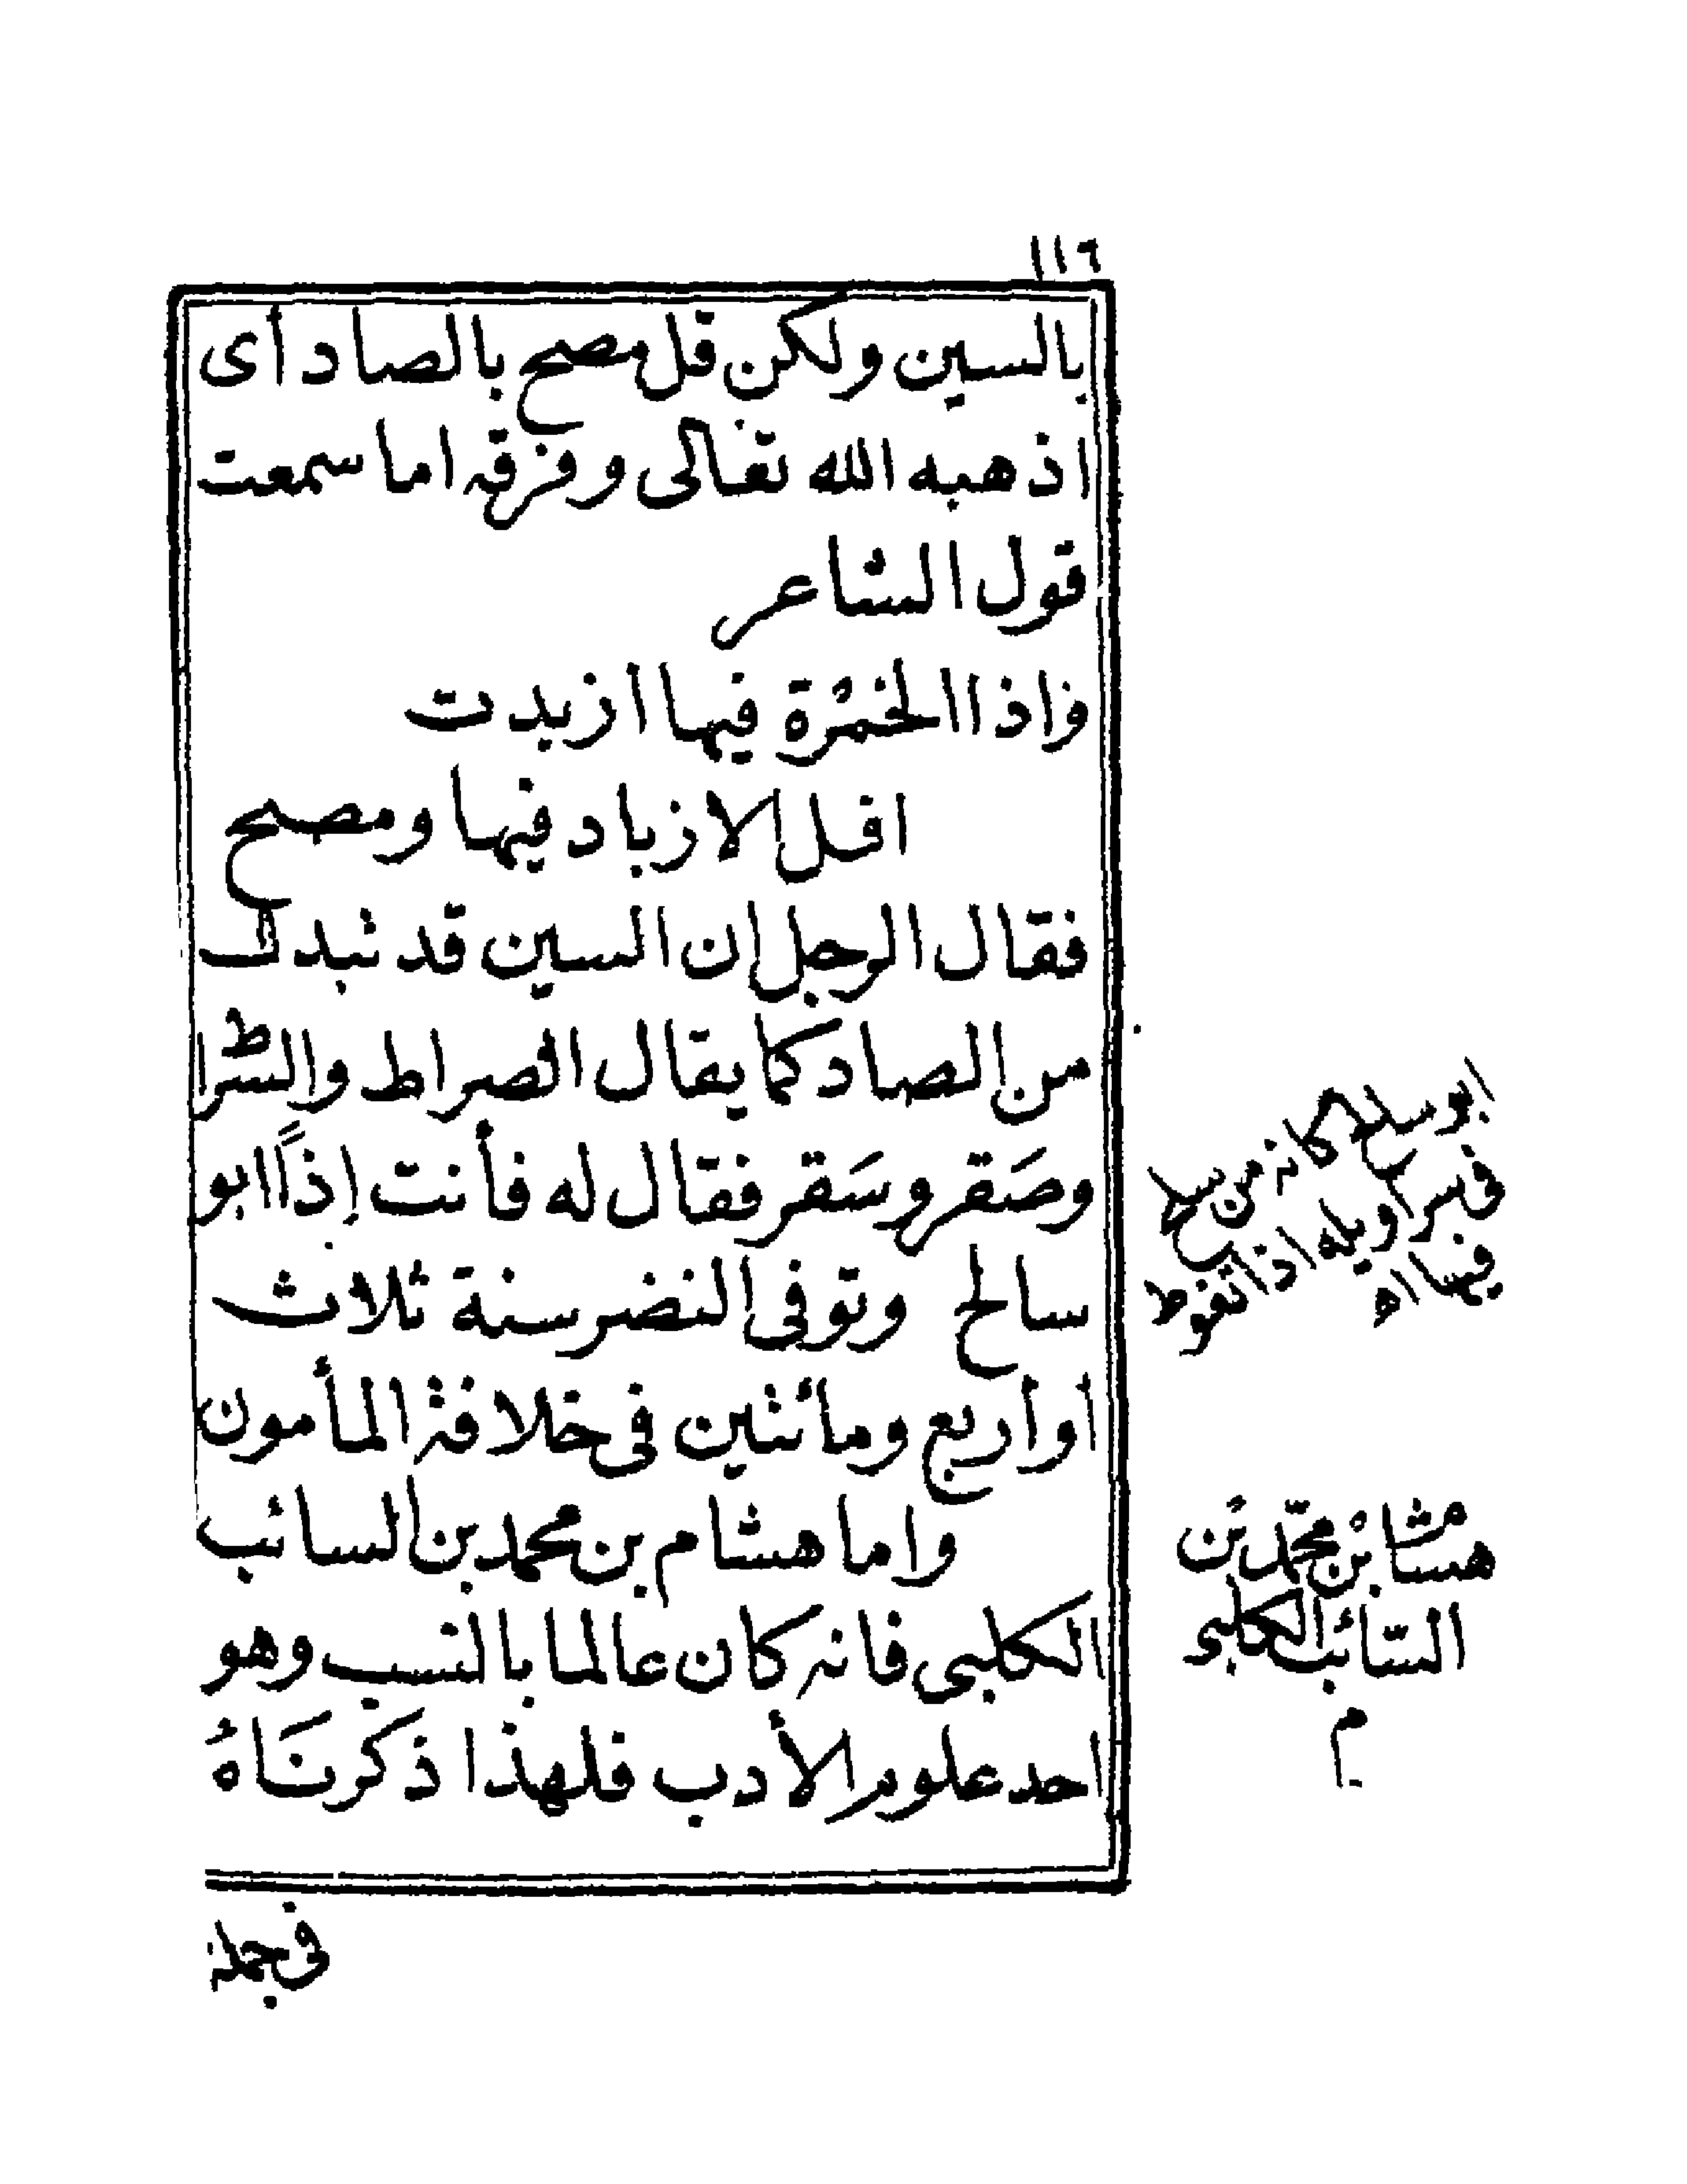 ١١٦
بالسين ولكن قل مصح بالصاد أى
اذهبه الله تعالى وفرقه اما سمعت
قول الشاعر
واذا الخمرة فيها ازبدت
افل الازباد فيها ومصح
فقال الرجل ان السين قد تبدل
من الصاد كما يقال الصراط والسراط
وصَقر وسَقر فقال له فأنت إذًا ابو
سالح وتوفى النضر سنة ثلاث
أو أربع ومائتين فى خلافة المأمون
واما هشام بن محمد بن السائب
الكلبى فانه كان عالما بالنسب وهو
احد علوم الأدب فلهذا ذكرنَاهُ
ابو سالح كانه من سلح
فى سراويله اذا تغوط
فيها اه
هشام بن محمّد بن
السّائب الكلبى
م
فى جملة